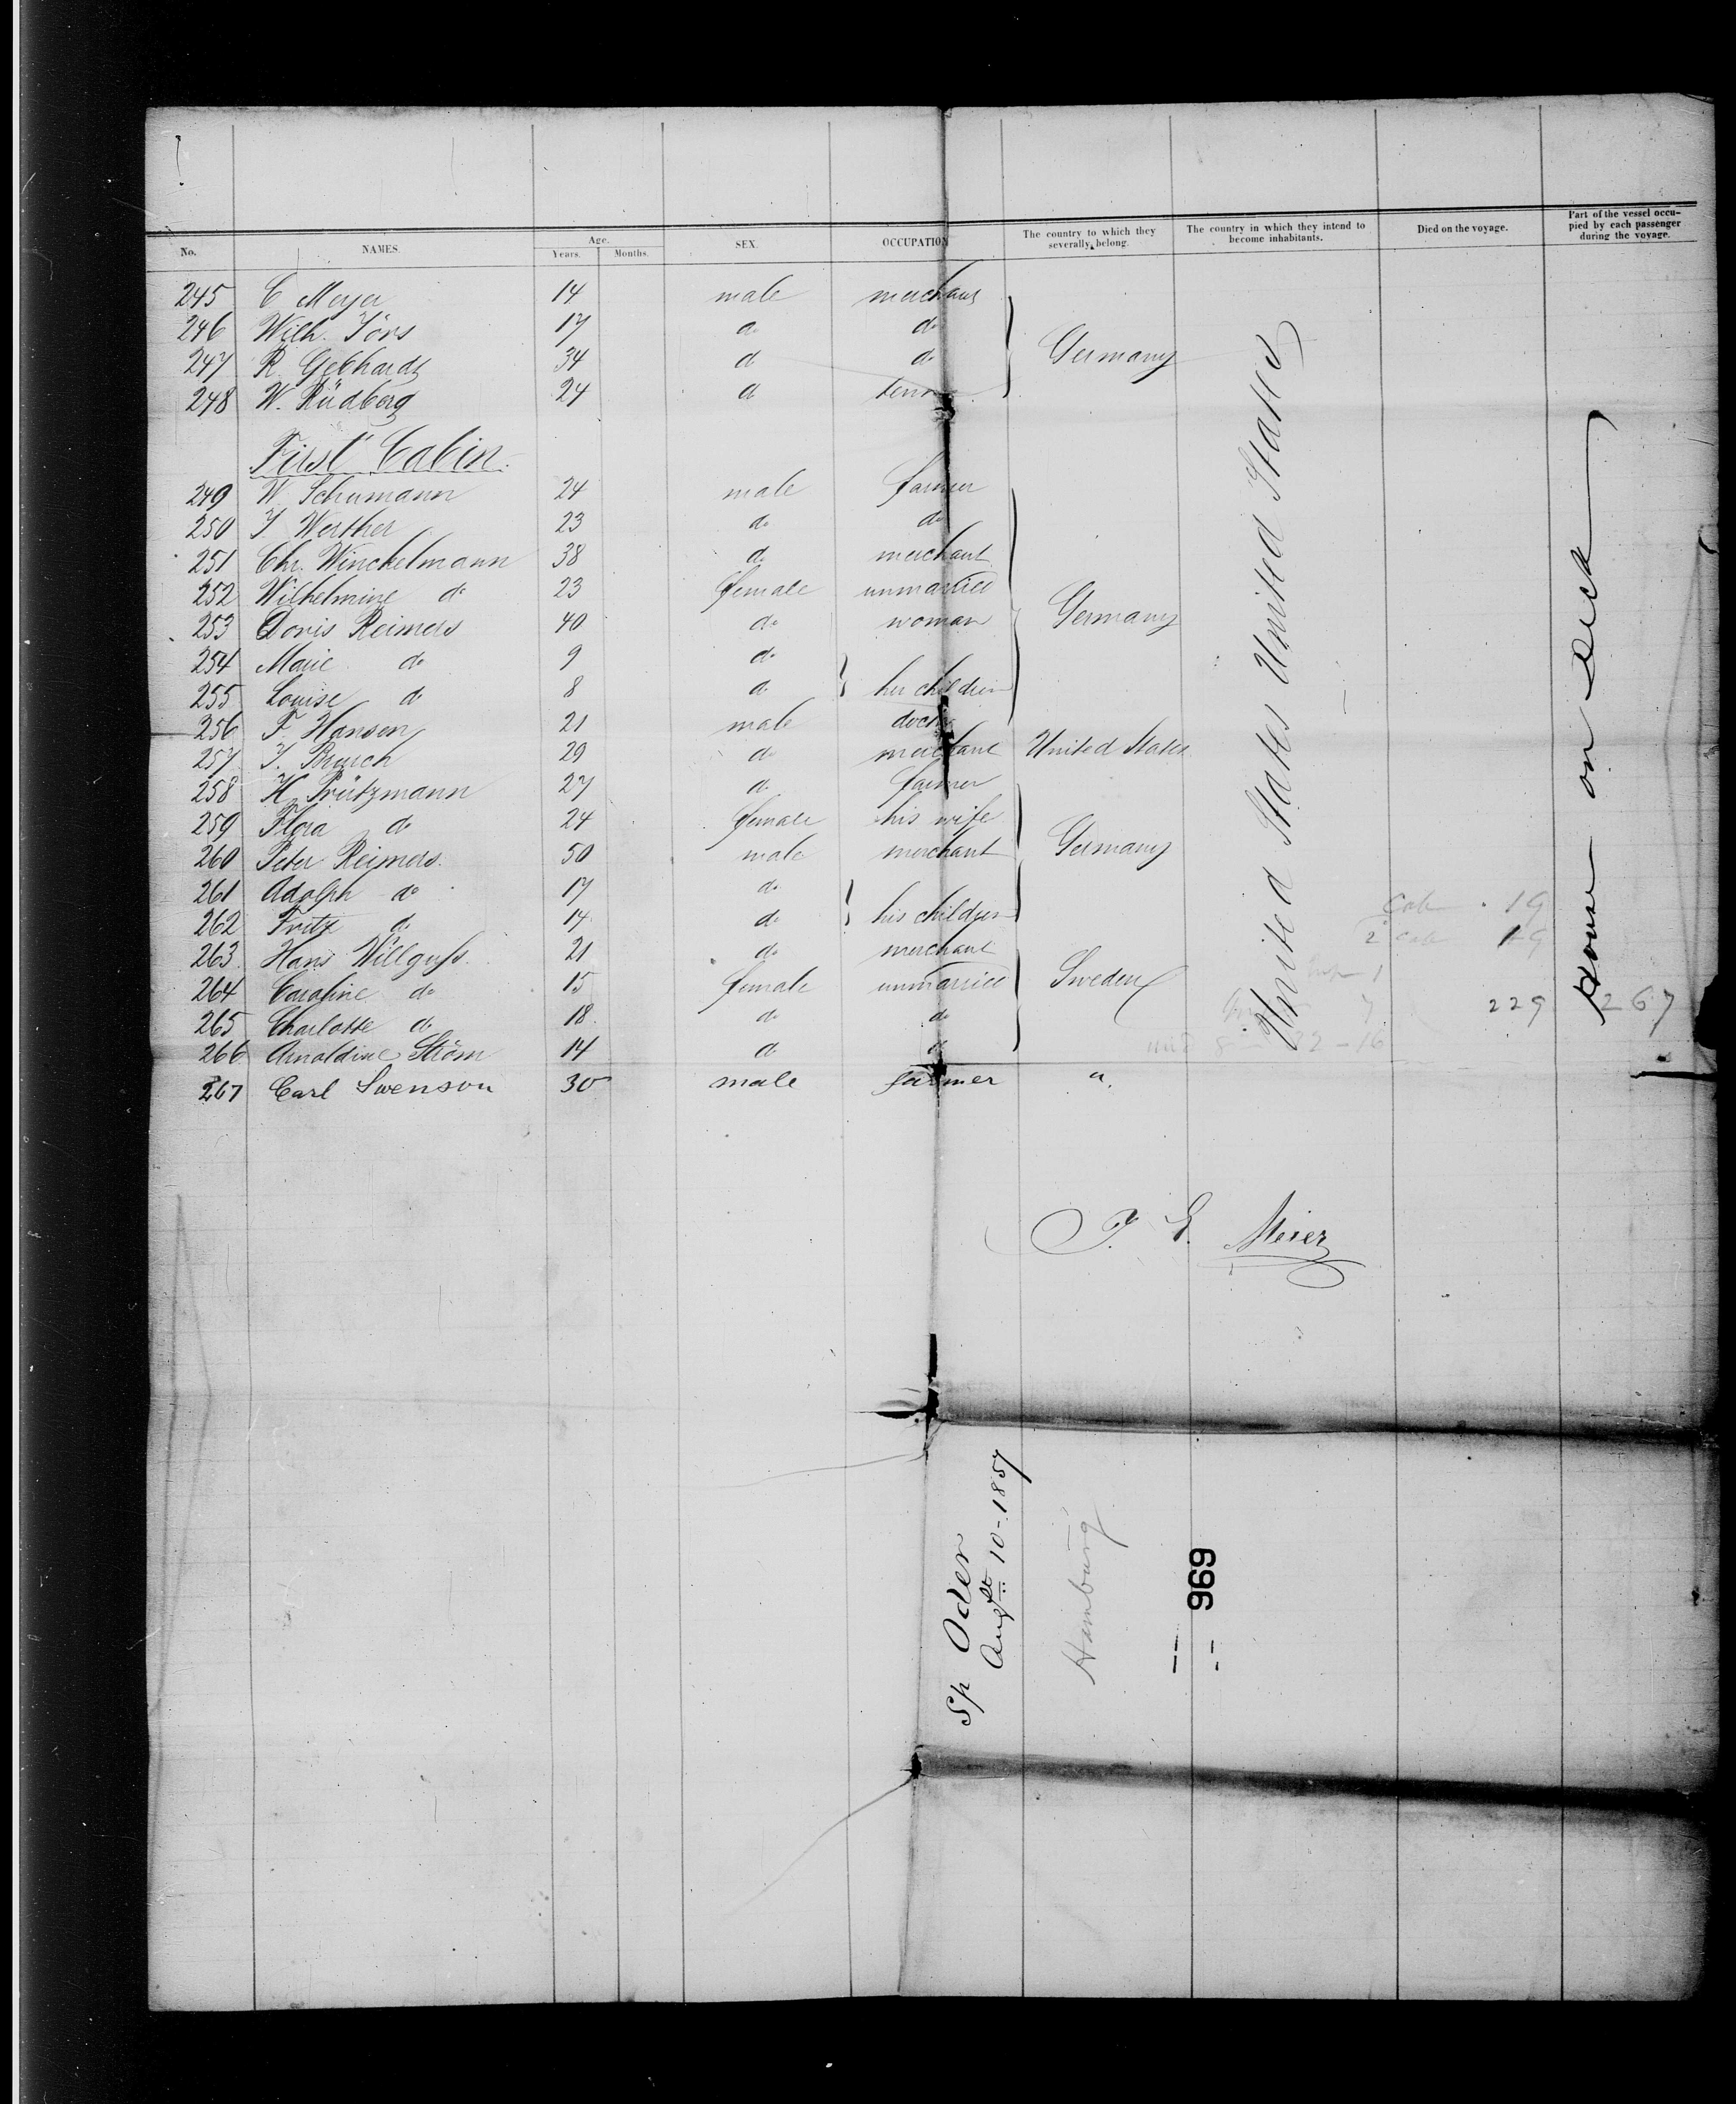 No. NAMES. Age. Years. Months. SEX. OCCUPATION The country to which they severally belong. The country in which they intend to become inhabitants. Died on the voyage. Part of the vessel occu-pied by each passenger during the voyage.
245 C Meyer 14 male merchant
246 Wilh. Jörs 17 do do
247 R. Gebhardt 34 do do Germany
248 W. Rüdberg 24 do
First Cabin.
249 W. Schumann 24 male farmer
250 J Werther 23 do do
251 Chr. Winckelmann 38 do merchant
252 Wilhelmine do 23 female unmarried
253 Doris Reimers 40 do woman Germany
254 Marie do 9 do
255 Louise do 8 do her children
256 F. Hansen 21 male
257 J. Brusch 29 do merchant United States
258 H. Prützmann 27 do farmer
259 Flora do 24 female his wife
260 Peter Reimers 50 male merchant Germany
261 Adolph do 17 do
262 Fritz do 14 do his children
263 Hans Willguss 21 do merchant
264 Caroline do 15 female unmarried Sweden
265 Charlotte do 18 do do
266 Arnoldine Ström 14 do do
267 Carl Swenson 30 male farmer "
United States United States
House on deck
Cab 19
2 Cab 19
229 267
J. E. Meier
Sp Oder
Augst 10 - 1857
Hamburg
969